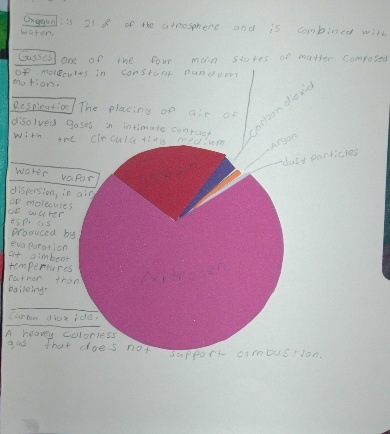 Oxygen: is 21% of the atmosphere and is combined with
water.
Gasses one of the four main states of matter composed
of molecules in constant random
motion.
Respiration The placing of air of
disolved gases in intimate contact
with the circulating medium
Carbon dioxied
Argon
dust particles
water vapor
dispersion, in air
of molecules
of water
esp. as
produced by
evaporation
at aimbent
tempertures
rather than
boileing.
Nitrogen
Carbon dioxide.
A heavey colorless
gas that does not support combustion.